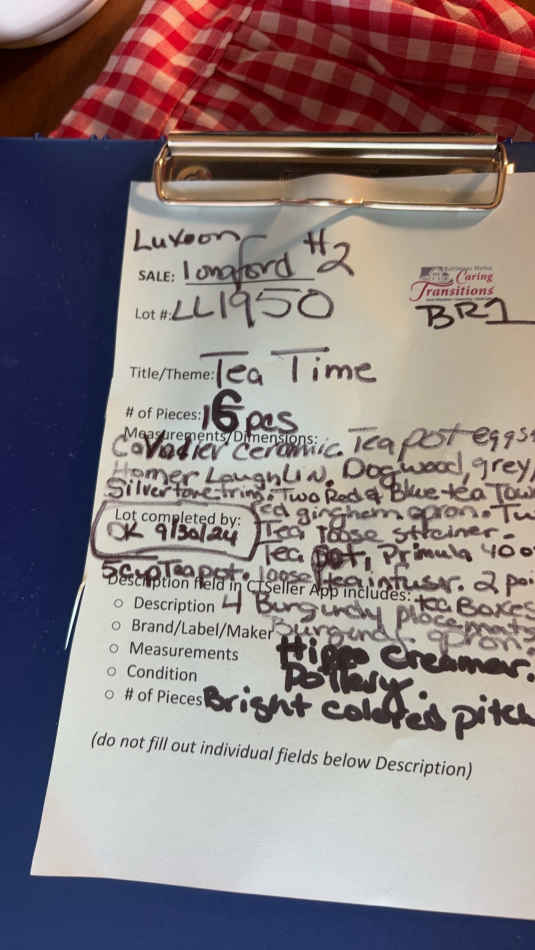 Luxoon
SALE: Longford #2
Caring
Transitions
Lot #: LL1950
BR1
Title/Theme: Tea Time
# of Pieces: 16 pcs
Measurements/Dimensions:
Cavalier Ceramic. Tea pot eggs
Homer Laughlin. Dogwood, grey,
Silver tone trim. Two Red & Blue tea Tow
red ginghem apron. Tw
Lot completed by:
OK 9/30/24
Tea loose strainer.
Tea Pot, Primula 40 o
5 cup Teapot. loose tea infuser. 2 poi
Description field in CTSeller App includes: tea Boxes
○ Description 4 Burgundy placemats
○ Brand/Label/Maker Burgundy apron
○ Measurements Hippo creamer.
○ Condition Pottery.
○ # of Pieces Bright colored pitch
(do not fill out individual fields below Description)